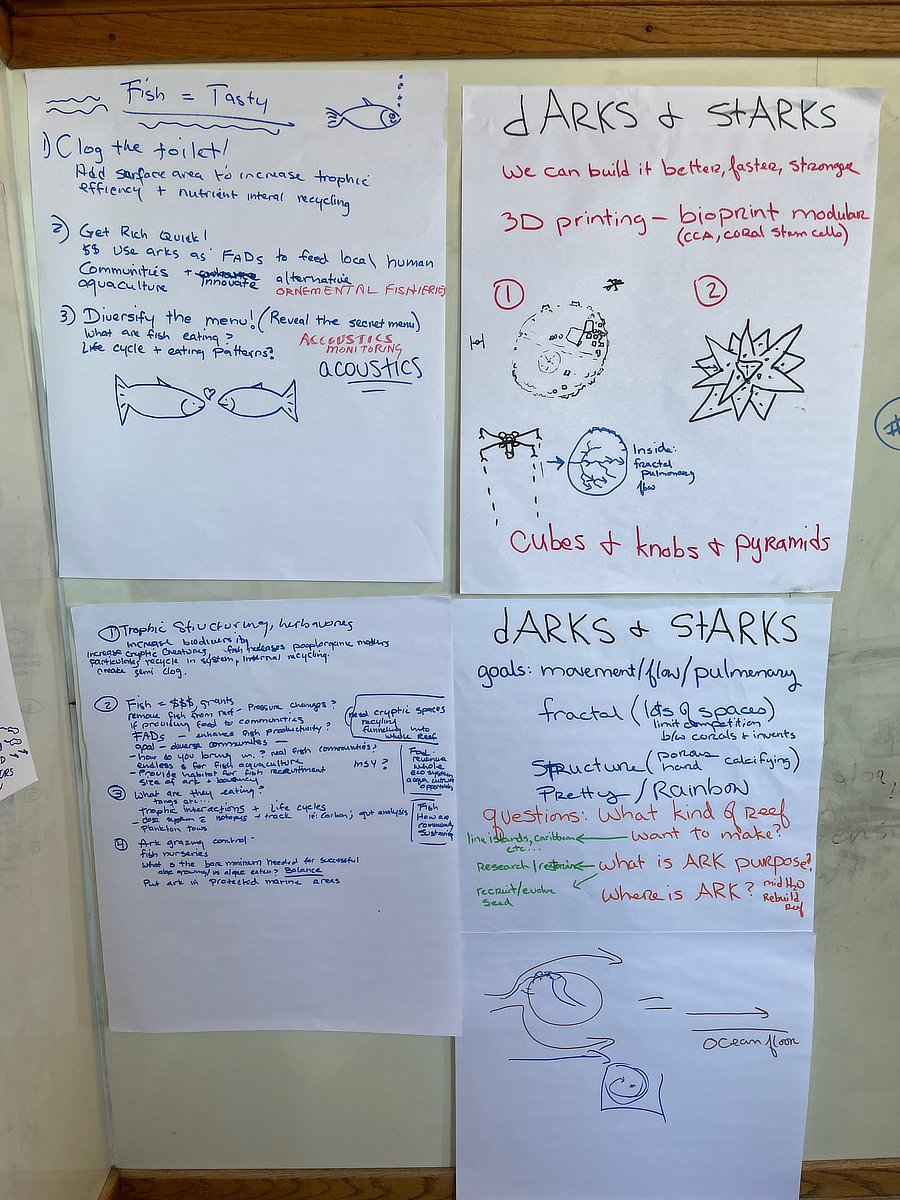 Fish = Tasty
1) Clog the toilet!
Add surface area to increase trophic
efficiency + nutrient interal recycling
2) Get Rich Quick!
$$ Use arks as FADs to feed local human
Communities + innovate alternative
aquaculture ORNEMENTAL FISHERIES
3) Diversify the menu! (Reveal the secret menu)
What are fish eating?
Life cycle + eating patterns?
ACCOUSTICS
MONITORING
acoustics
dARKS & stARKS
We can build it better, faster, stronger
3D printing - bioprint modular
(CCA, coral stem cells)
1
2
Inside:
fractal
pulmonary
flow
cubes & knobs & pyramids
1 Trophic Structuring, herbivores
increase biodiversity
increase cryptic creatures, fish releases poop/organic matters
particulates/recycle in system, internal recycling.
create semi clog.
2 Fish = $$$, grants
remove fish from reef - Pressure changes?
if providing food to communities
FADs - enhance fish productivity?
goal - diverse communities
- how do you bring in? real fish communities?
endless $ for fish aquaculture MSY?
- Provide habitat for fish recruitment
size of ark +
need cryptic spaces
recycling
funneling into
whole Reef
Food
revenue
whole
eco system
aqua culture
opportunity
3 What are they eating?
tangs etc...
trophic interactions + Life cycles
- system = isotopes + track ie: carbon; gut analysis
Plankton tows
Fish
How are
community
sustaining
4 Ark grazing control -
fish nurseries
What is the bare minimum needed for successful
algae growing/vs algae eaten? Balance
Put ark in protected marine areas
dARKS & StARKS
goals: movement/flow/pulmonary
fractal (lots of spaces)
limit competition
b/w corals & inverts
Structure (porous calcifying)
hard
Pretty/Rainbow
questions: What kind of Reef
line islands, caribbean want to make?
etc...
Research/restore What is ARK purpose?
recruit/evolve Where is ARK? mid H2O
seed Rebuild
Reef
=
ocean floor
#